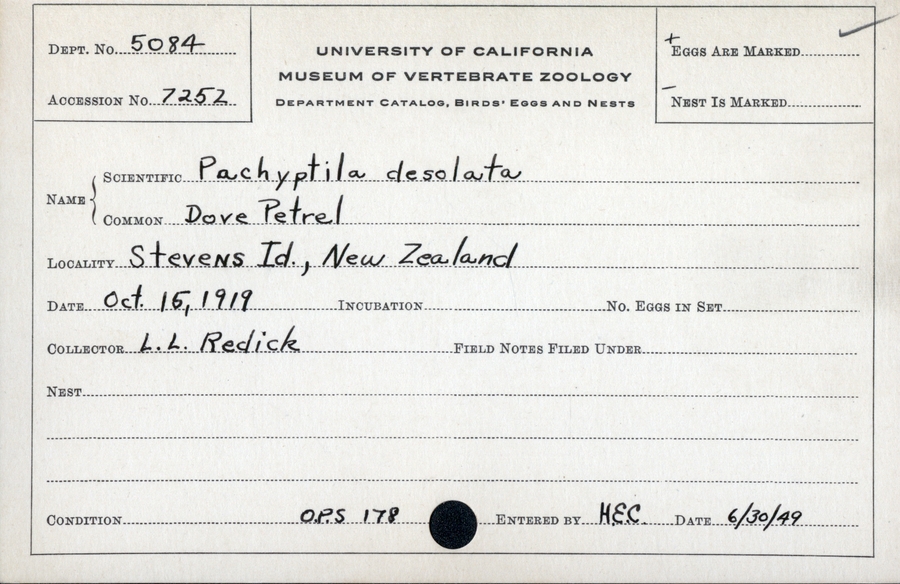 DEPT. NO. 5084
ACCESSION NO. 7252
UNIVERSITY OF CALIFORNIA
MUSEUM OF VERTEBRATE ZOOLOGY
DEPARTMENT CATALOG, BIRDS' EGGS AND NESTS
+ EGGS ARE MARKED
– NEST IS MARKED
NAME { SCIENTIFIC Pachyptila desolata
COMMON Dove Petrel
LOCALITY Stevens Id., New Zealand
DATE Oct. 15, 1919 INCUBATION NO. EGGS IN SET
COLLECTOR L.L. Redick FIELD NOTES FILED UNDER
NEST
CONDITION O.P.S 178 ENTERED BY H.E.C. DATE 6/30/49